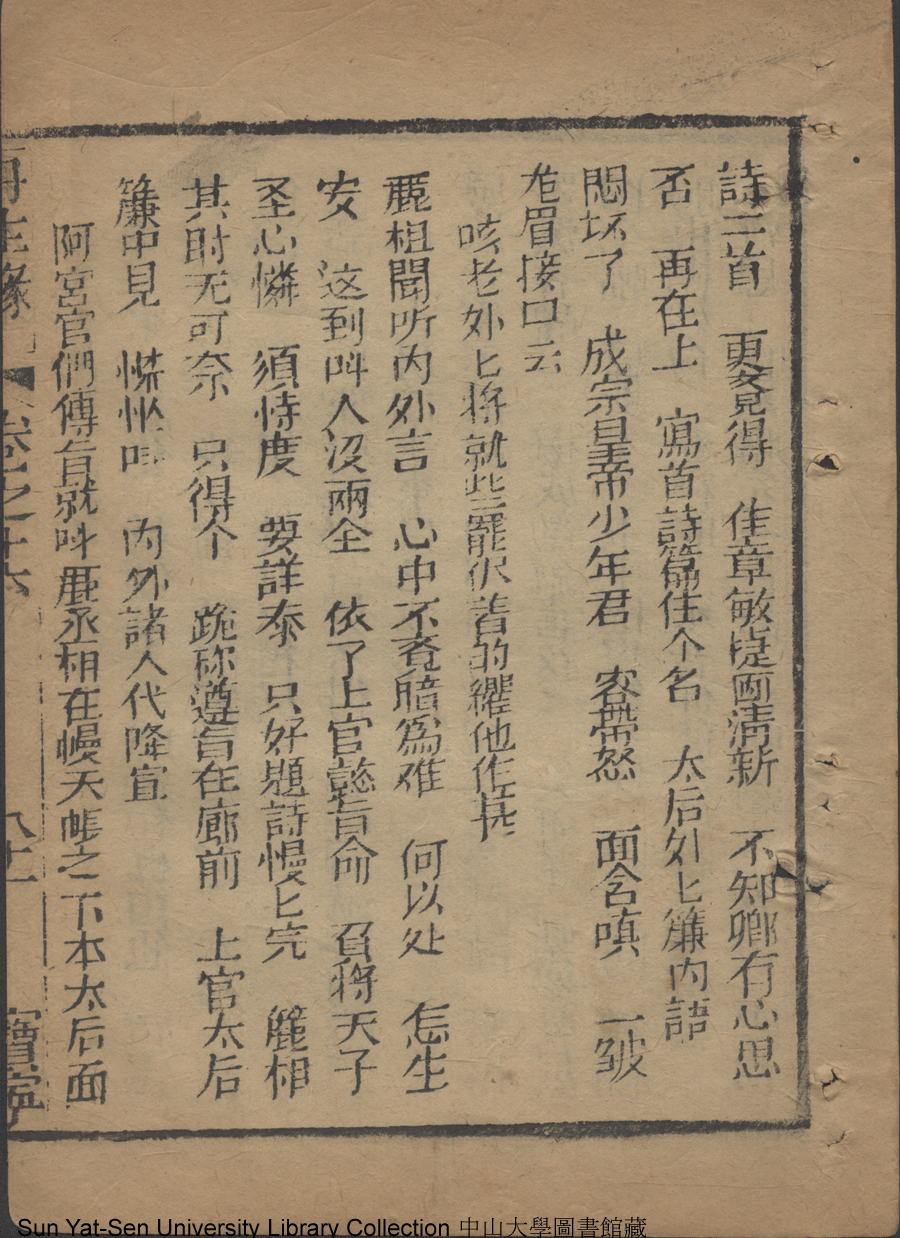 詩二首　更覓得　佳章敏捷而清新　不知卿有心思
否　再在上　寫首詩篇住个名　太后外匕簾內語
悶坏了　成宗皇帝少年君　容帶怒　面含嗔　一皱
龙眉接口云
咳老外匕将就些罷伏首的纙他作甚
鹿相聞听内外言　心中不覔暗為难　何以处　怎生
安　这到呌人没兩全　依了上官懿旨命　召将天子
圣心憐　須恃度　要詳泰　只好題詩慢匕完　鹿相
其时无可奈　只得个　跪称遵旨在廊前　上官太后
簾中見　惏惏呌　內外諸人代降宣
阿宮官們傳旨就呌鹿丞相在幔天帳之下本太后面
再生緣　卷之十六　八十一　寶寧
Sun Yat-Sen University Library Collection 中山大學圖書館藏